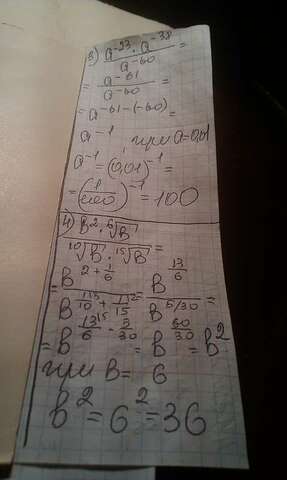 3) a⁻²³ · a⁻³⁸ / a⁻⁶⁰ =
= a⁻⁶¹ / a⁻⁶⁰ =
= a⁻⁶¹⁻⁽⁻⁶⁰⁾ =
a⁻¹, при a=0,01
a⁻¹ = (0,01)⁻¹ =
= (1/100)⁻¹ = 100
4) B² · ⁶√B / ¹⁰√B · ¹⁵√B =
= B^(2+1/6) / B^(1/10+1/15) = B^(13/6) / B^(5/30) =
= B^(13/6 - 5/30) = B^(60/30) = B²
при B= 6
B² = 6² = 36